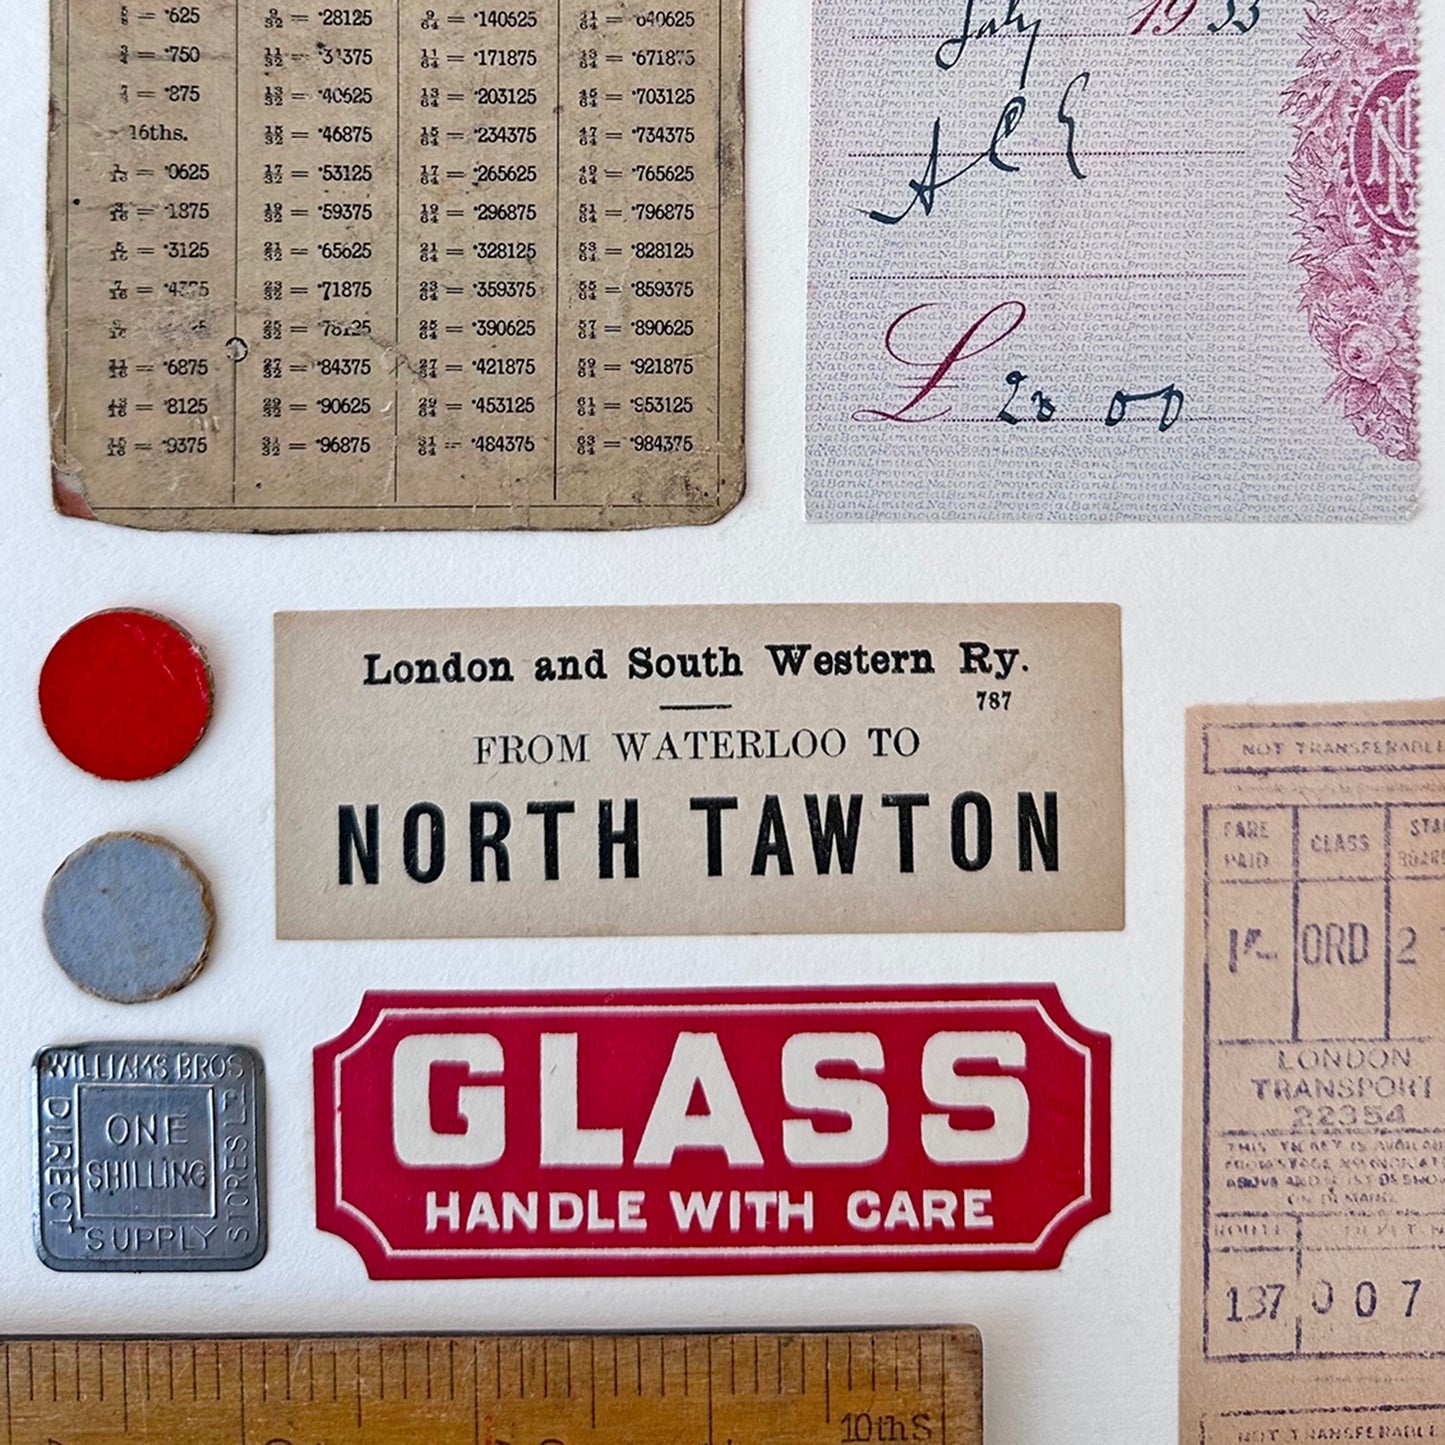 5/8 = ·625 9/32 = ·28125 9/64 = ·140625 41/64 = ·640625
3/4 = ·750 11/32 = ·34375 11/64 = ·171875 43/64 = ·671875
7/8 = ·875 13/32 = ·40625 13/64 = ·203125 45/64 = ·703125
16ths. 15/32 = ·46875 15/64 = ·234375 47/64 = ·734375
1/16 = ·0625 17/32 = ·53125 17/64 = ·265625 49/64 = ·765625
3/16 = ·1875 19/32 = ·59375 19/64 = ·296875 51/64 = ·796875
5/16 = ·3125 21/32 = ·65625 21/64 = ·328125 53/64 = ·828125
7/16 = ·4375 23/32 = ·71875 23/64 = ·359375 55/64 = ·859375
25/32 = ·78125 25/64 = ·390625 57/64 = ·890625
11/16 = ·6875 27/32 = ·84375 27/64 = ·421875 59/64 = ·921875
13/16 = ·8125 29/32 = ·90625 29/64 = ·453125 61/64 = ·953125
15/16 = ·9375 31/32 = ·96875 31/64 = ·484375 63/64 = ·984375
July 1933
£ 20 00
National Provincial Bank Limited
London and South Western Ry.
787
FROM WATERLOO TO
NORTH TAWTON
GLASS
HANDLE WITH CARE
WILLIAMS BROS
DIRECT
SUPPLY
STORES LTD
ONE
SHILLING
10thS
NOT TRANSFERABLE
FARE CLASS
PAID
1/- ORD 2
LONDON
TRANSPORT
22354
ON DEMAND
ROUTE
137 007
NOT TRANSFERABLE